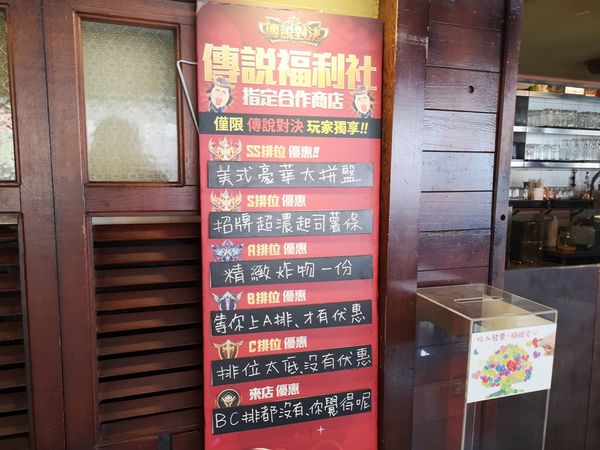 傳說對決
傳說福利社
指定合作商店
僅限 傳說對決 玩家獨享!!
SS排位 優惠!!
美式豪華大拼盤
S排位 優惠
招牌超濃起司薯條
A排位 優惠
精緻炸物一份
B排位 優惠
等你上A排、才有伏惠
C排位 優惠
排位太低、沒有伏惠
來店 優惠
BC排都沒有、你覺得呢
投入發票·捐贈愛心